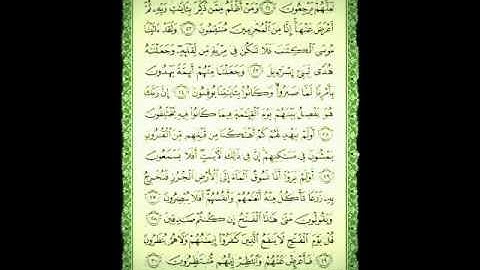 لَعَلَّهُمْ يَرْجِعُونَ ٢١ وَمَنْ أَظْلَمُ مِمَّن ذُكِّرَ بِـَٔايَـٰتِ رَبِّهِۦ ثُمَّ
أَعْرَضَ عَنْهَآ إِنَّا مِنَ ٱلْمُجْرِمِينَ مُنتَقِمُونَ ٢٢ وَلَقَدْ ءَاتَيْنَا
مُوسَى ٱلْكِتَـٰبَ فَلَا تَكُن فِى مِرْيَةٍ مِّن لِّقَآئِهِۦ وَجَعَلْنَـٰهُ
هُدًى لِّبَنِىٓ إِسْرَٰٓءِيلَ ٢٣ وَجَعَلْنَا مِنْهُمْ أَئِمَّةً يَهْدُونَ
بِأَمْرِنَا لَمَّا صَبَرُوا۟ وَكَانُوا۟ بِـَٔايَـٰتِنَا يُوقِنُونَ ٢٤ إِنَّ رَبَّكَ
هُوَ يَفْصِلُ بَيْنَهُمْ يَوْمَ ٱلْقِيَـٰمَةِ فِيمَا كَانُوا۟ فِيهِ يَخْتَلِفُونَ
٢٥ أَوَلَمْ يَهْدِ لَهُمْ كَمْ أَهْلَكْنَا مِن قَبْلِهِم مِّنَ ٱلْقُرُونِ
يَمْشُونَ فِى مَسَـٰكِنِهِمْ إِنَّ فِى ذَٰلِكَ لَـَٔايَـٰتٍ أَفَلَا يَسْمَعُونَ
٢٦ أَوَلَمْ يَرَوْا۟ أَنَّا نَسُوقُ ٱلْمَآءَ إِلَى ٱلْأَرْضِ ٱلْجُرُزِ فَنُخْرِجُ
بِهِۦ زَرْعًا تَأْكُلُ مِنْهُ أَنْعَـٰمُهُمْ وَأَنفُسُهُمْ أَفَلَا يُبْصِرُونَ ٢٧
وَيَقُولُونَ مَتَىٰ هَـٰذَا ٱلْفَتْحُ إِن كُنتُمْ صَـٰدِقِينَ ٢٨
قُلْ يَوْمَ ٱلْفَتْحِ لَا يَنفَعُ ٱلَّذِينَ كَفَرُوٓا۟ إِيمَـٰنُهُمْ وَلَا هُمْ يُنظَرُونَ
٢٩ فَأَعْرِضْ عَنْهُمْ وَٱنتَظِرْ إِنَّهُم مُّنتَظِرُونَ ٣٠